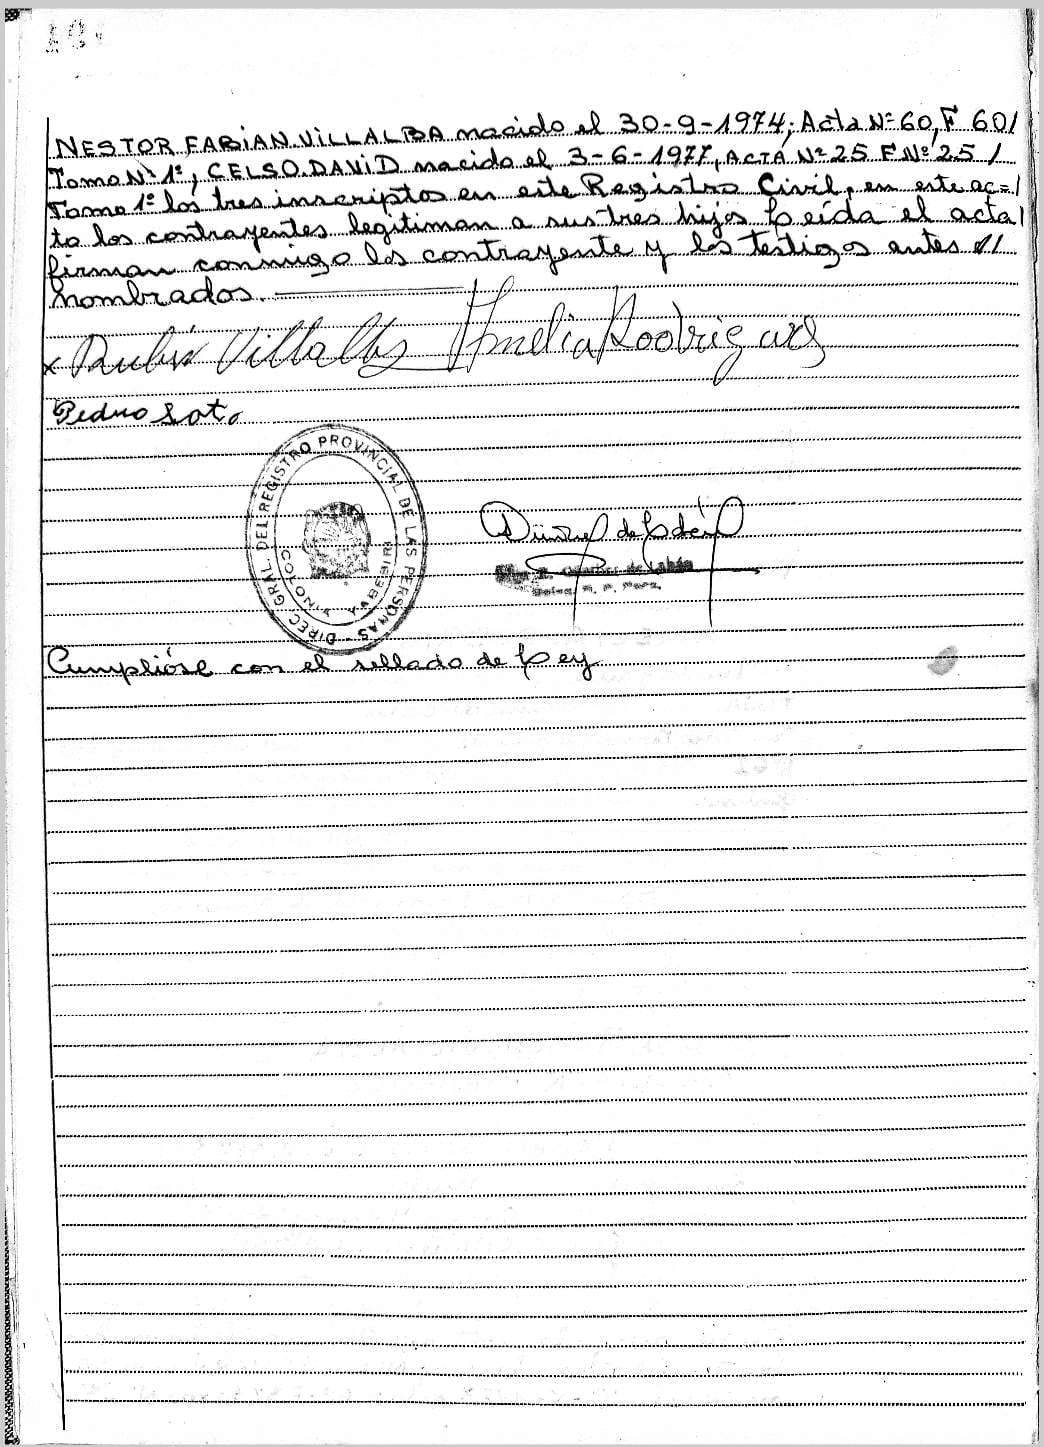 NESTOR FABIAN VILLALBA nacido el 30-9-1974; Acta Nº 60, F 60/
Tomo Nº 1º, CELSO.DAVID nacido el 3-6-1977, ACTA Nº 25 F Nº 25 /
Tomo 1º los tres inscriptos en este Registro Civil, en este ac=/
to los contrayentes legitiman a sus tres hijos Leída el acta/
firman conmigo los contrayente y los testigos antes //
nombrados.
x Rubén Villalba Amelia Rodriguez
Pedro Soto
DIREC. GRAL. DEL REGISTRO PROVINCIAL DE LAS PERSONAS -
COLONIA YABEBIRI
de
Cumplióse con el sellado de Ley